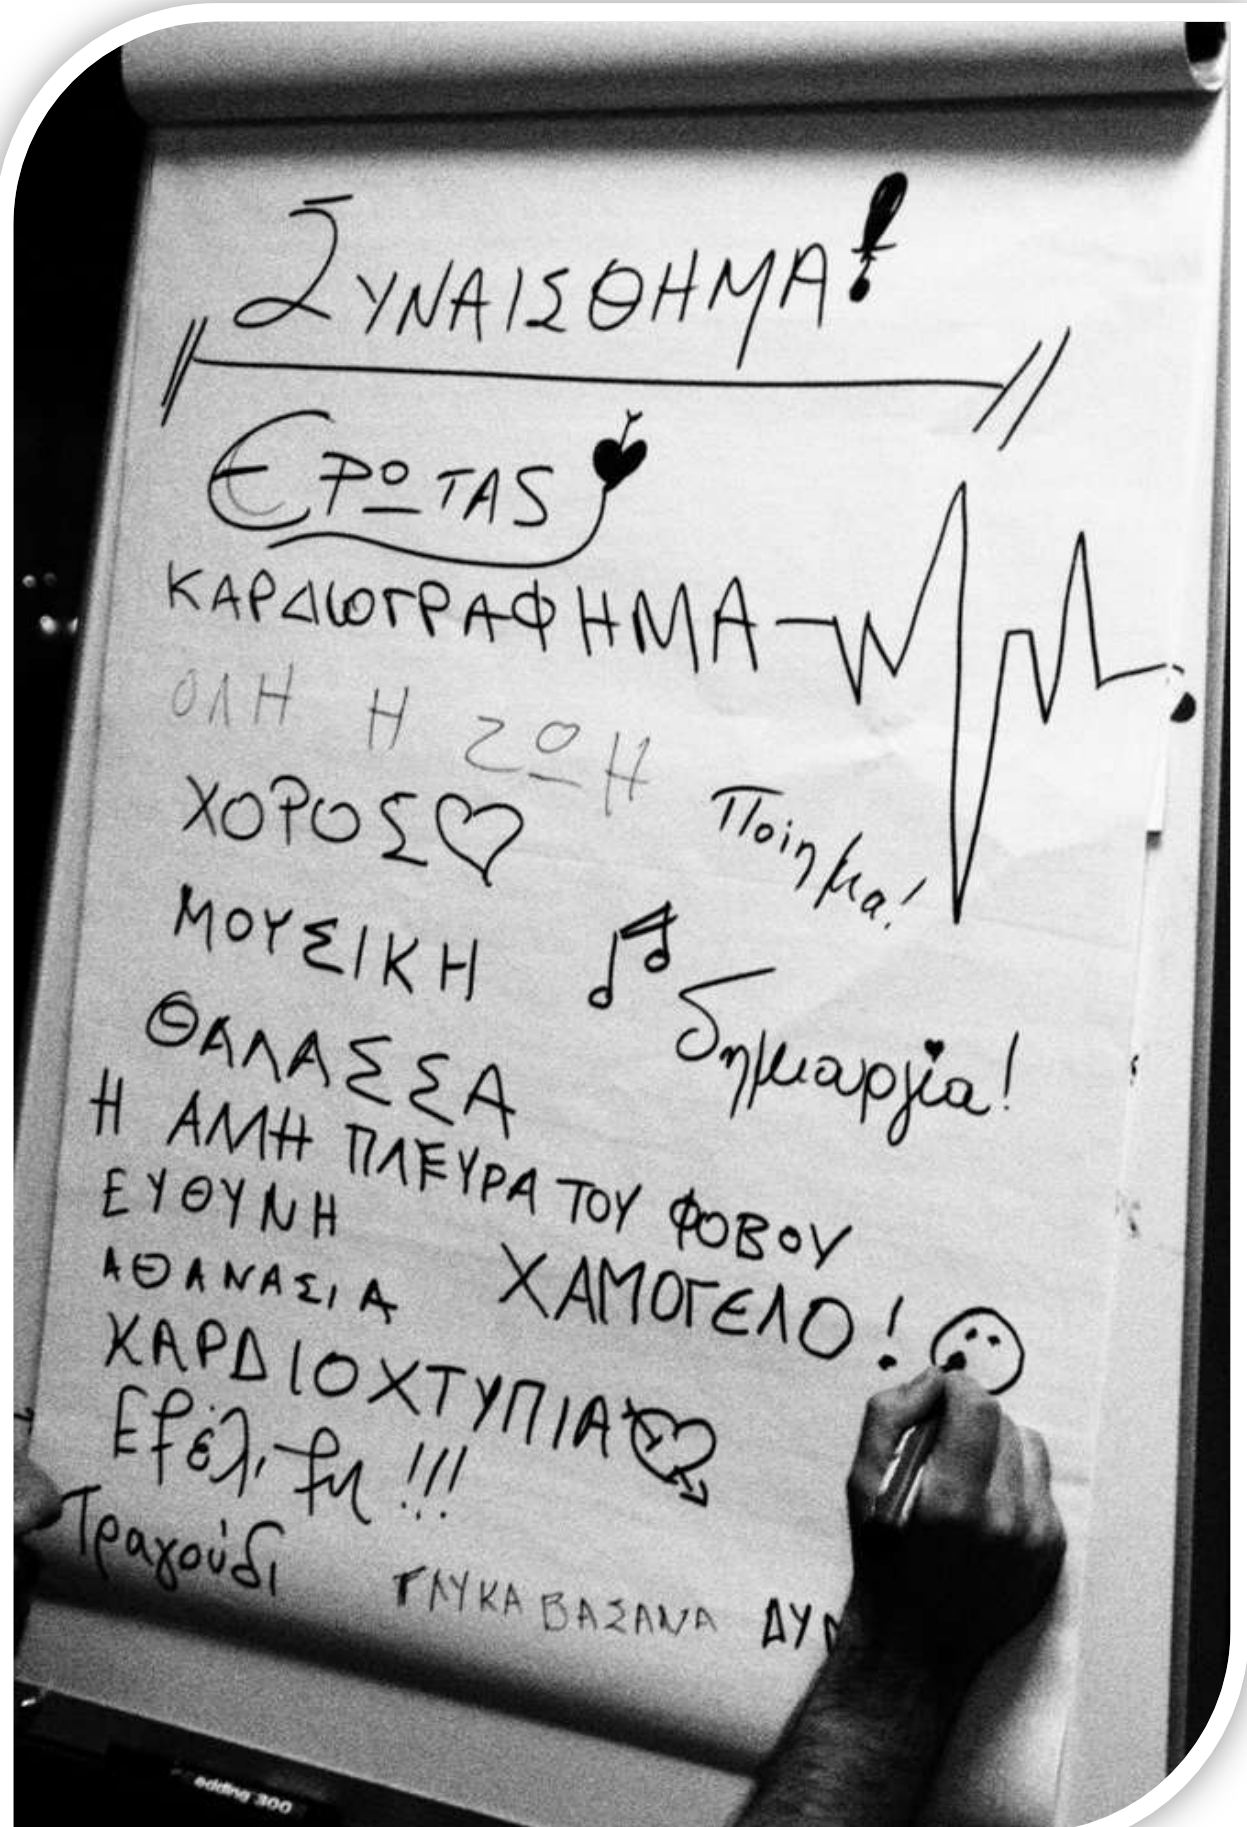 ΣΥΝΑΙΣΘΗΜΑ!
ΕΡΩΤΑS
ΚΑΡΔΙΟΓΡΑΦΗΜΑ
ΟΛΗ Η ΖΩΗ
ΧΟΡΟΣ
Ποίημα!
ΜΟΥΣΙΚΗ
δημιουργία!
ΘΑΛΑΣΣΑ
Η ΑΛΛΗ ΠΛΕΥΡΑ ΤΟΥ ΦΟΒΟΥ
ΕΥΘΥΝΗ
ΑΘΑΝΑΣΙΑ
ΧΑΜΟΓΕΛΟ!
ΚΑΡΔΙΟΧΤΥΠΙΑ
Εξέλιξη!!!
Τραγούδι
ΓΛΥΚΑ ΒΑΣΑΝΑ
edding 300